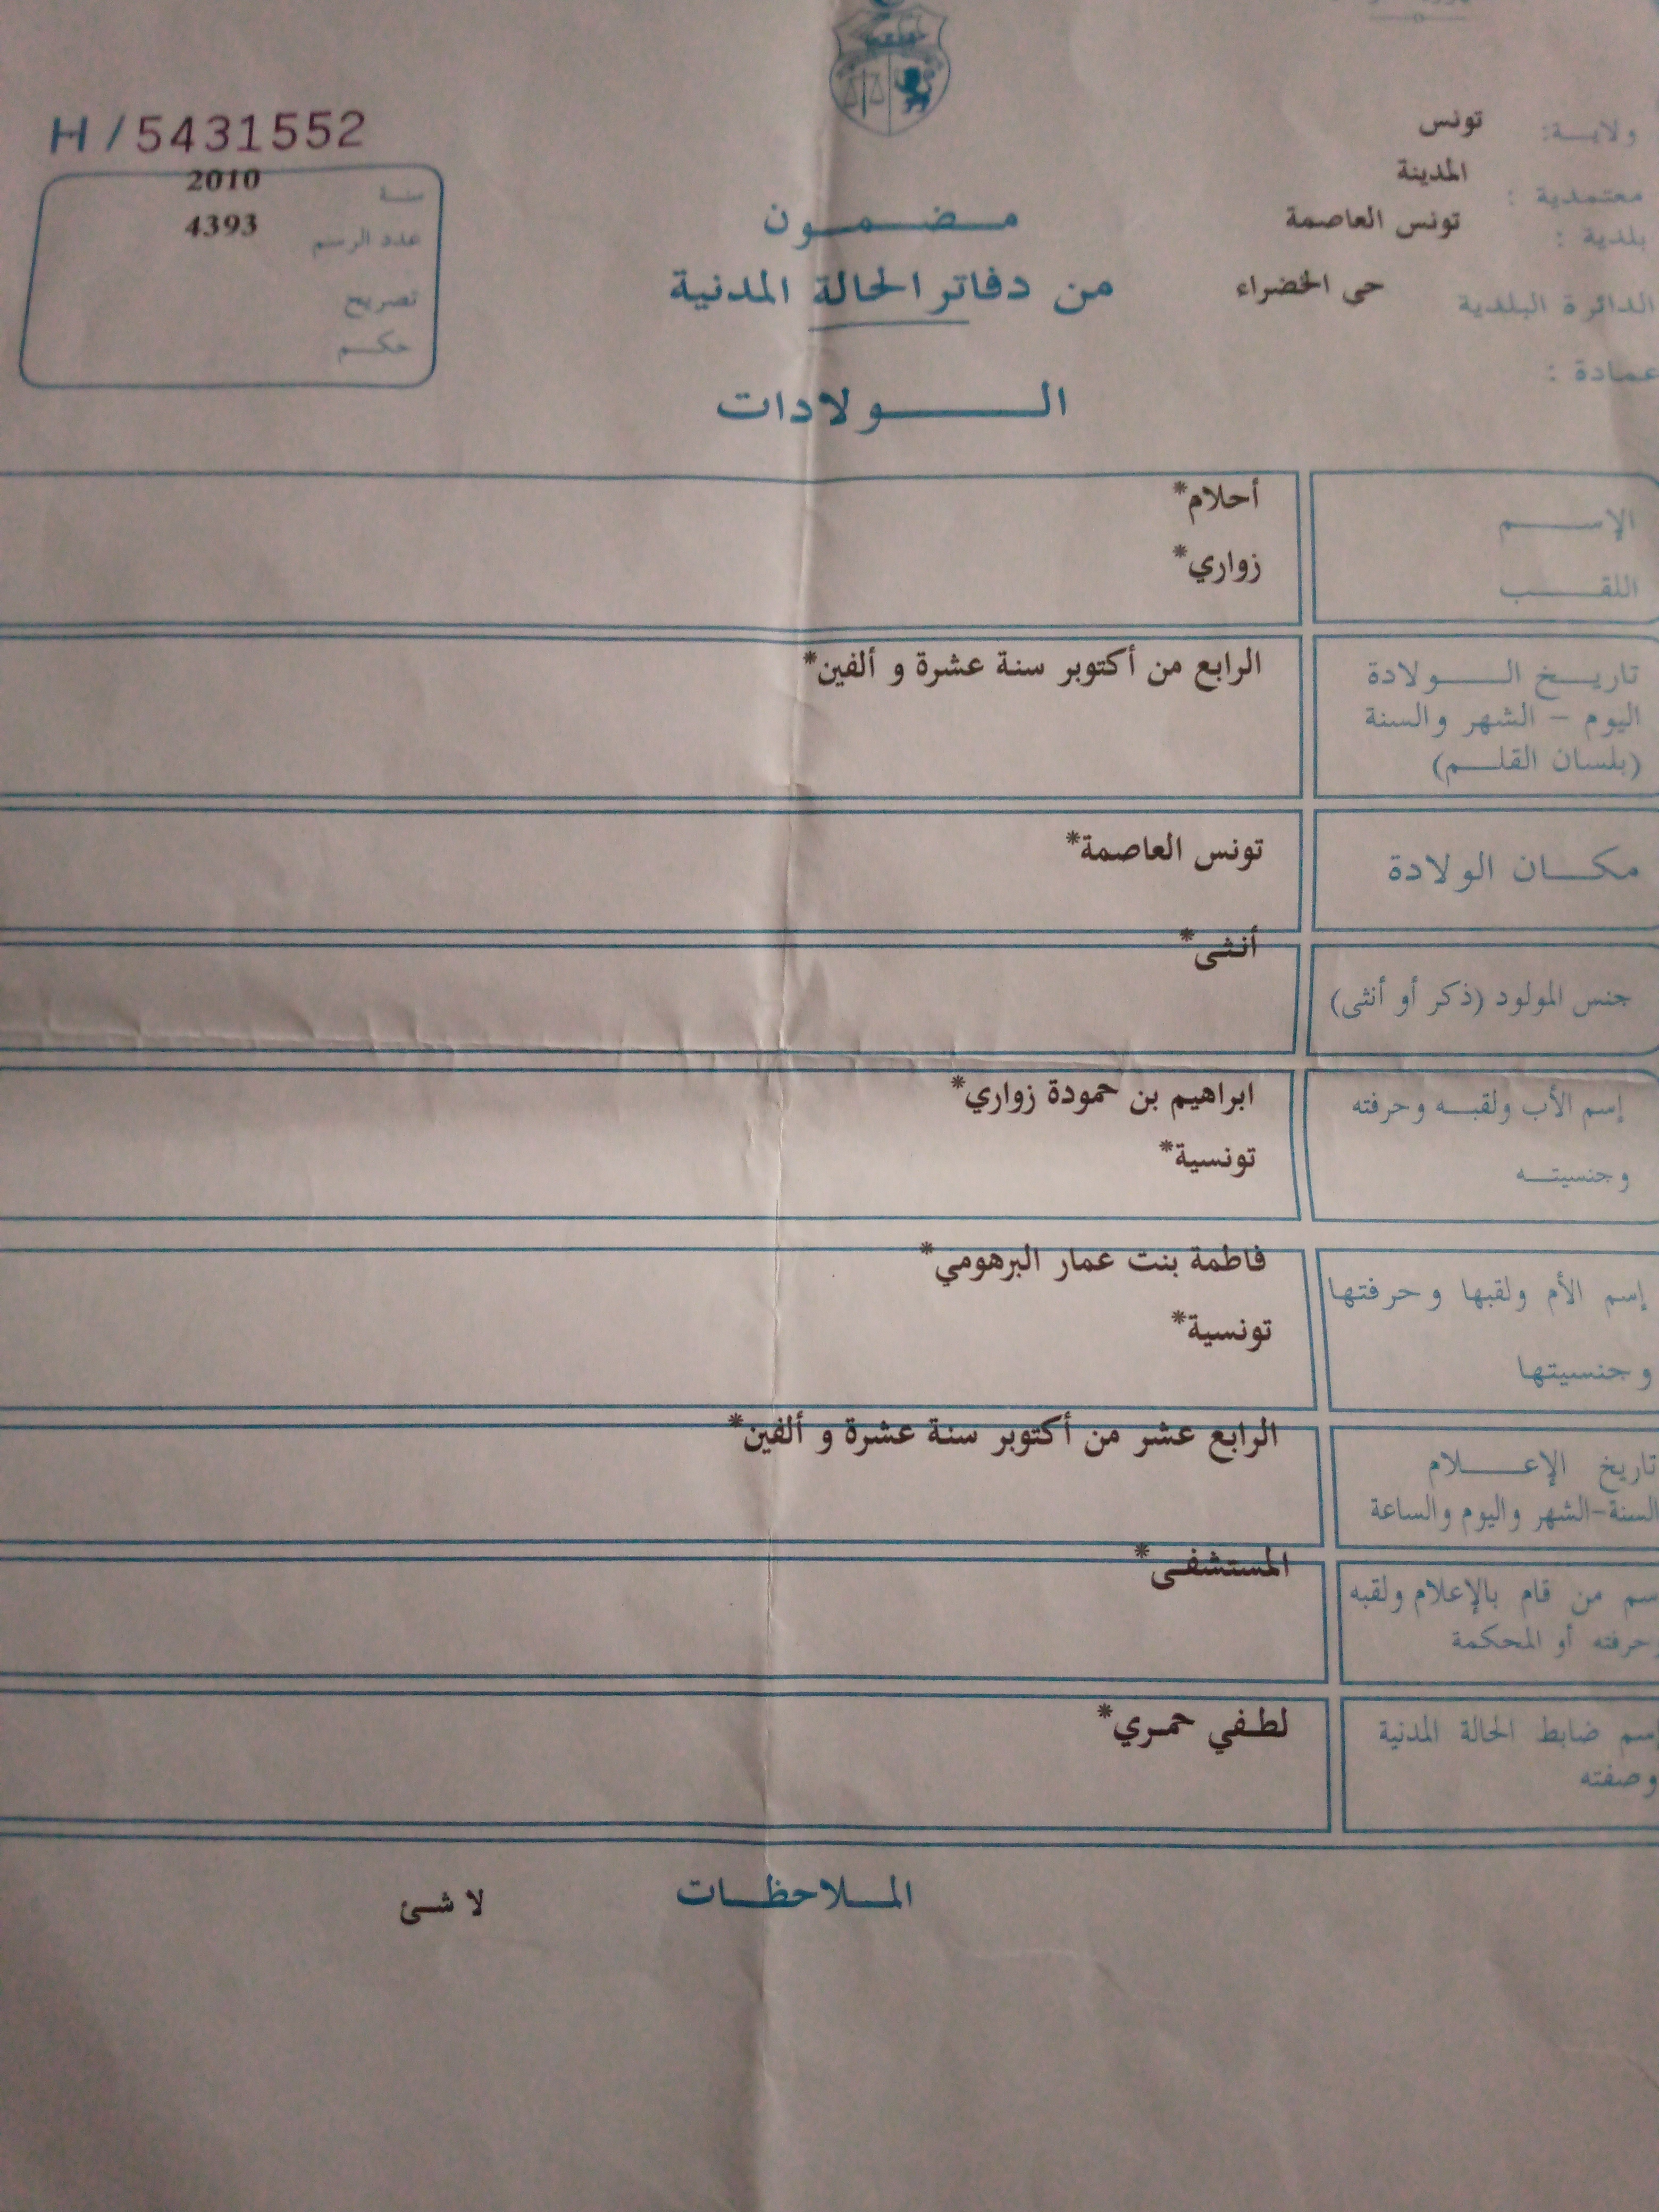 H / 5431552
ولايـــة: تونس
معتمدية : المدينة
بلدية : تونس العاصمة
الدائرة البلدية حى الخضراء
عمادة :
سنـــة 2010
عدد الرسم 4393
تصريح
حكـــم
مـــضـــمـــون
من دفاتر الحالة المدنية
الـــولادات
الإســـم أحلام*
اللقـــب زواري*
تاريـــخ الـــولادة الرابع من أكتوبر سنة عشرة و ألفين*
اليوم – الشهر والسنة
(بلسان القلـــم)
مكـــان الولادة تونس العاصمة*
جنس المولود (ذكر أو أنثى) أنثى*
إسم الأب ولقبـــه وحرفته ابراهيم بن حمودة زواري*
وجنسيتـــه تونسية*
إسم الأم ولقبها وحرفتها فاطمة بنت عمار البرهومي*
وجنسيتها تونسية*
تاريخ الإعـــلام الرابع عشر من أكتوبر سنة عشرة و ألفين*
السنة-الشهر واليوم والساعة
سم من قام بالإعلام ولقبه المستشفى*
حرفته أو المحكمة
إسم ضابط الحالة المدنية لطفي حمري*
وصفته
المـــلاحظـــات لا شئ